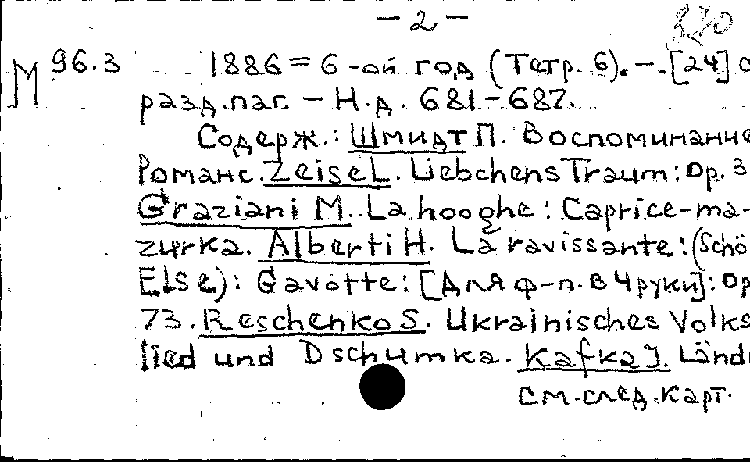 - 2 -
М 96.3 1886 = 6-ой год (Тетр. 6). -. [24] с
разд.паг. - Н.д. 681-687.
Содерж.: Шмидт П. Воспоминание
Романс. Zeise L. Liebchens Traum: Op. 3
Graziani M. La hooghe: Caprice-ma-
zurka. Alberti H. La ravissante: (Schö
Else): Gavotte: [Для ф-п. в 4 руки]: Op
73. Reschenko S. Ukrainisches Volks
lied und Dschumka. Kafka J. Länd
см. след. карт.